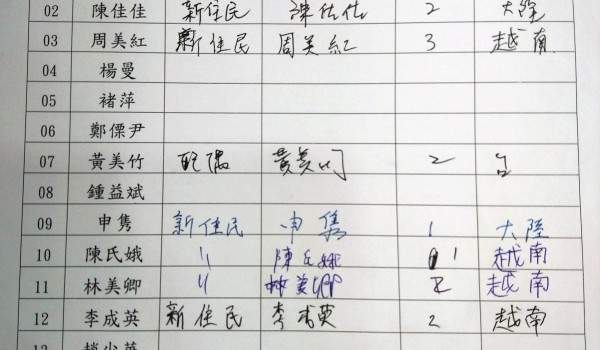 02 陳佳佳 新住民 陳佳佳 2 大陸
03 周美紅 新住民 周美紅 3 越南
04 楊曼
05 褚萍
06 鄭傈尹
07 黃美竹 配偶 黃美竹 2 台
08 鍾益斌
09 申雋 新住民 申雋 1 大陸
10 陳氏娥 〃 陳氏娥 1 越南
11 林美卿 〃 林美卿 2 越南
12 李成英 新住民 李成英 2 越南